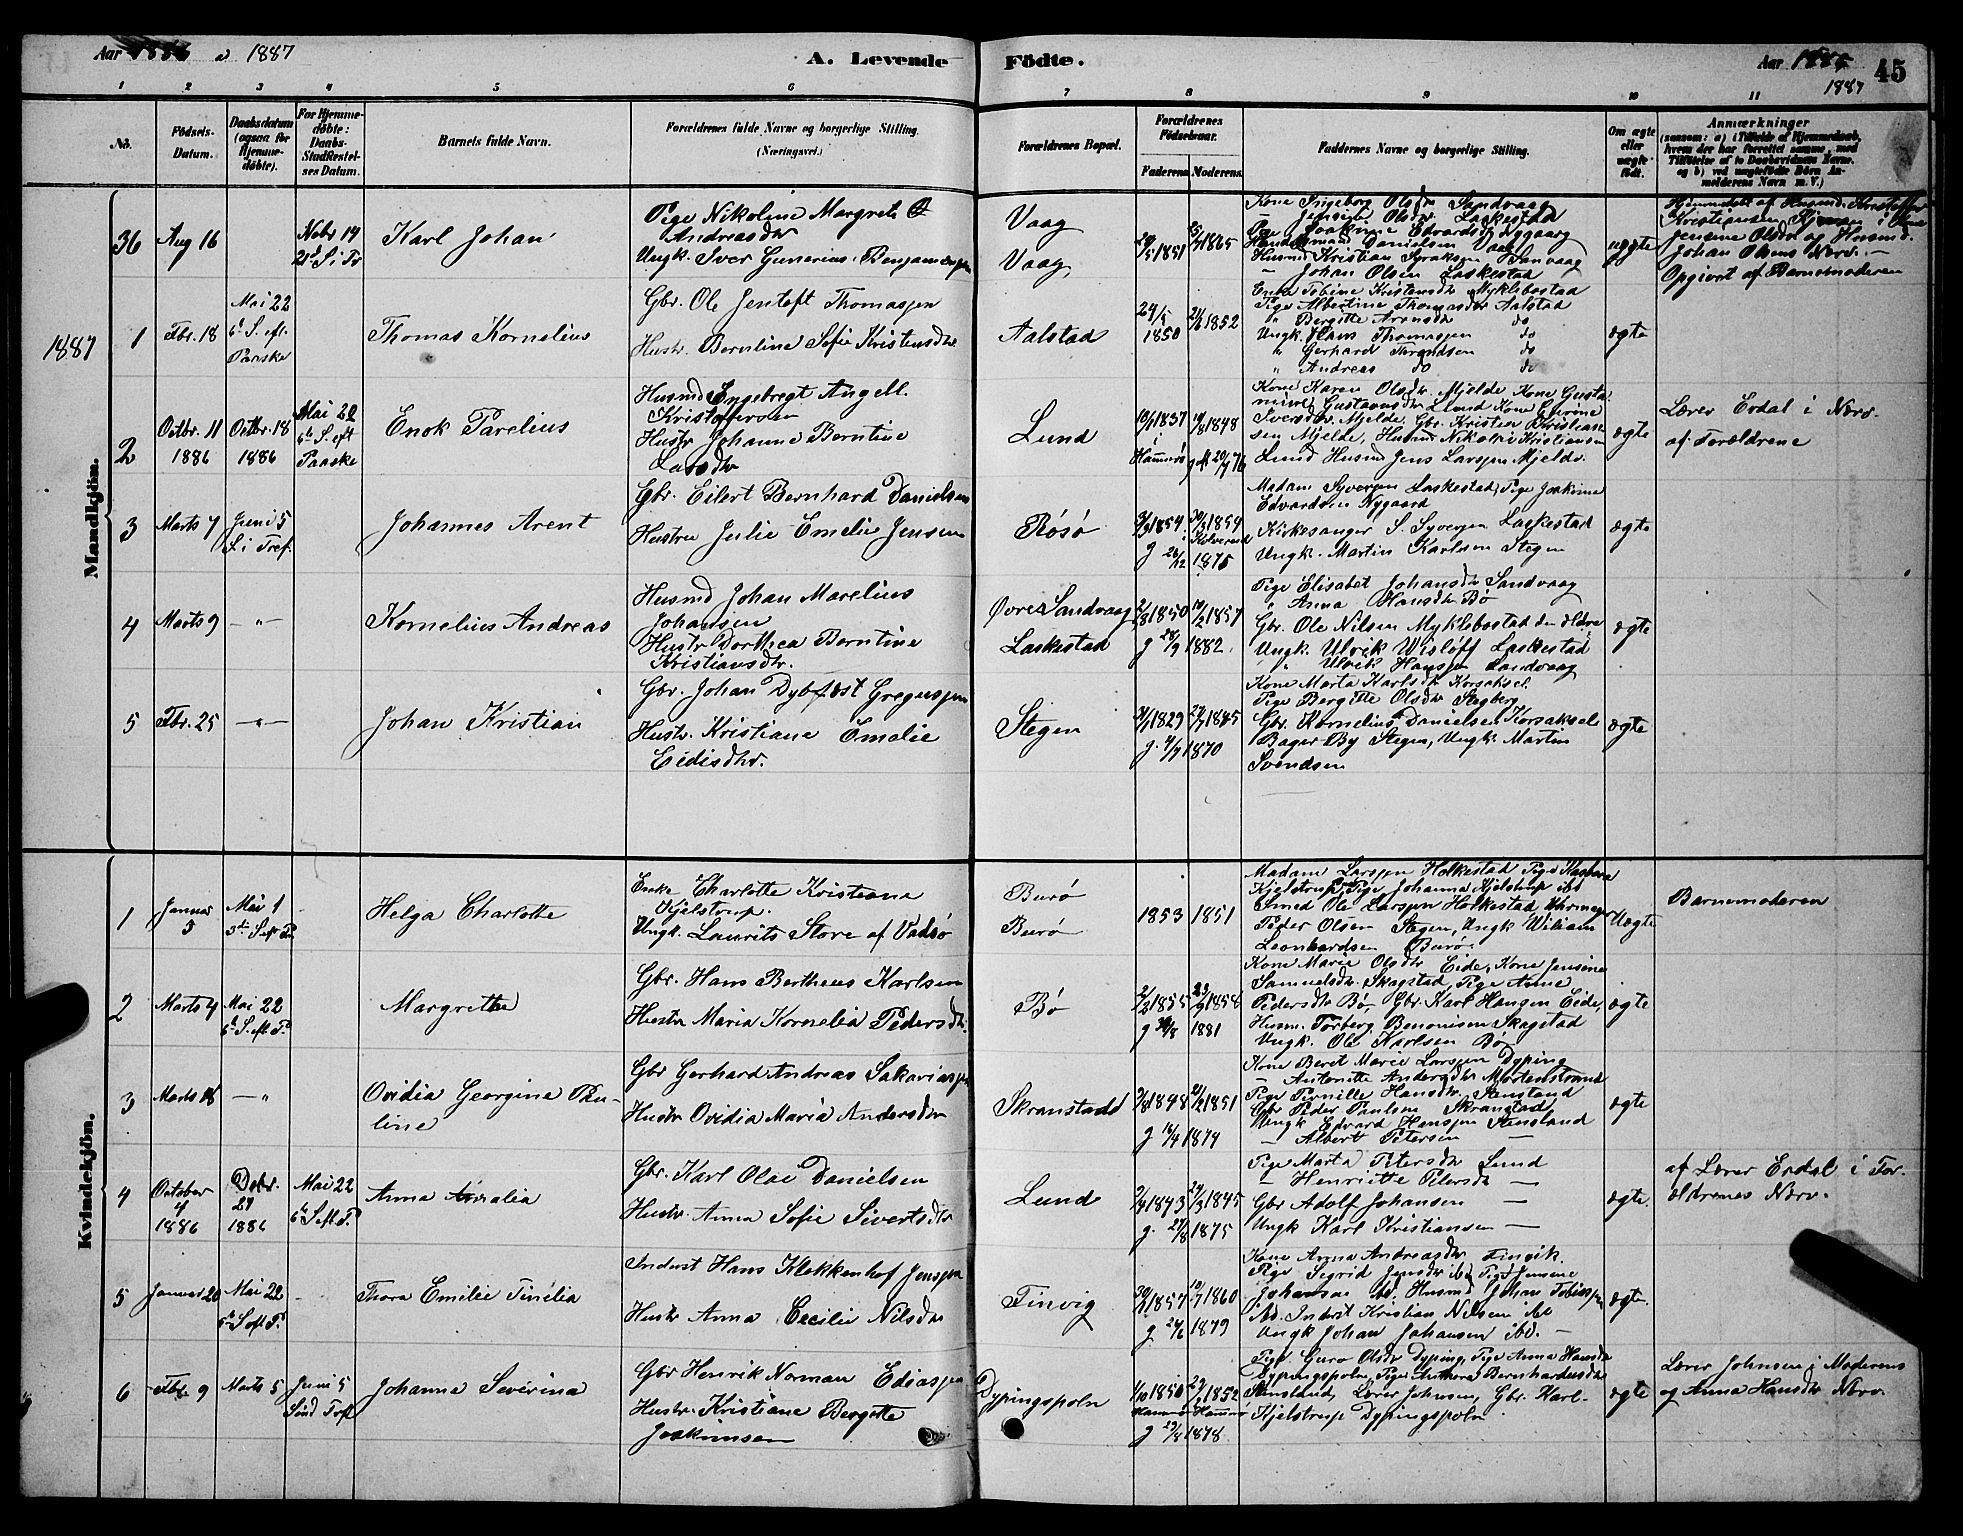 Aar 1886 a 1887
A. Levende Födte.
Aar 1886 1887
45
1 2 3 4 5 6 7 8 9 10 11
No.
Födsels-Datum.
Daabsdatum (ogsaa for Hjemme-döbte).
For Hjemme-döbte: Daabs-Stadfæstel-ses Datum.
Barnets fulde Navn.
Forældrenes fulde Navne og borgerlige Stilling. (Næringsvei.)
Forældrenes Bopæl.
Forældrenes Födselsaar.
Faderens Moderens
Faddernes Navne og borgerlige Stilling.
Om ægte eller uægte födt.
Anmærkninger
(saasom: a) i Tilfælde af Hjemmedaab, hvem der har forrettet samme, med Tilföielse af to Daabsvidners Navne. og b) ved uægtefödte Börn Anmelderens Navn m. V.)
Mandkjön.
36 Aug 16
Nobr 14
21d S. i Tr
Karl Johan
Pige Nikoline Margrete
Andreasdtr
Ungk. Iver Gunerius Benjaminsen
Vaag
Vaag
29/5 1851 1865
Kone Ingeborg Olsdtr Sandvaag
– Jensine Olsdtr Laskestad
Pige Joakime Edvardsdtr Nygaard
Handelsmand Danielsen Vaag
Husmd Kristian Syraksen Sanvaag
– Johan Olsen Laskestad
uægte
Hjemmedøbt af Husmd. Kristoffer
Kristiansen
Jensine Olsdtr og Husmd.
Johan Olsens Nærv. –
Opgivet af Barnemoderen
1887
1 Fbr. 18
Mai 22
6t S. eft.
Paaske
Thomas Kornelius
Gbr. Ole Jentoft Thomassen
Hustr. Berntine Sofie Kristensdtr
Aalstad
24/5 1850 2/6 1852
Enke Tobine Kristensdtr Myklebostad
Pige Albertine Thomasdtr Aalstad
" Bergitte Arensdtr do
Ungk. Hans Thomassen do
" Gerhard Torendsen do
" Andreas do do
ægte
2 Octbr. 11
1886
Octbr. 18
1886
Mai 22
6te S. eft
Paaske
Enok Parelius
Husmd Engebregt Angell
Kristoffersen
Hustr Johanne Berntine
Larsdtr
Lund
10/1 1837
i
Hammerø
11/8 1848
Kone Karen Olsdtr. Mjelde, Kone Gusta-
Gustavsdtr Lund Kone
Sversdtr. Mjelde, Gbr. Kristen Kristian-
sen Mjelde, Husmd Nikolai Kristiansen
Lund Husmd Jens Larssen Mjelde.
ægte
Lærer Erdal i Nærv.
af Forældrene
3 Marts 7
Juni 5
S. i Tref.
Johannes Arent
Gbr. Eilert Bernhard Danielsen
Hustru Julie Emelie Jensen
Røsø
1854 1859
g 28/12 1875
Madam Syversen Laskestad, Pige Joakime
Edvardsen Nygaard
Kirkesanger S. Syversen Laskestad
Ungk. Martin Karlsen Stegen
ægte
4 Marts 9
– " –
Kornelius Andreas
Husmd Johan Marelius
Johansen
Hustr Dorthea Berntine
Kristiansdtr.
Øvre Sandvaag
Laskestad
2/8 1850 10/2 1857
g 28/9 1882
Pige Elisabet Johansdtr Sandvaag
" Anna Hansdtr Bø
Gbr. Ole Nilsen Myklebostad den ældre
Ungk. Ulrik Wisløff Laskestad
" Ulrik Hansen Sandvaag
ægte
5 Fbr. 25
– " –
Johan Kristian
Gbr. Johan Dybfest Gregussen
Hustr. Kristiane Emalie
Eidisdtr.
Stegen
1829 1845
g. 4/9 1870
Kone Marta Karlsdtr Korsaksel.
Pige Bergitte Olsdtr Stegberg
Gbr. Kornelius Danielsen Korsaksel
Bager By Stegen, Ungk. Martin
Svendsen
ægte
Kvindekjön.
1 Januar
3
Mai 1
3die S. eft P.
Helga Charlotte
Enke Charlotte Kristiane
Kjelstrup.
Ungk. Laurits Store af Vadsø
Burø
Burø
1853 1851
Madam Larssen Holkestad Pige
Kjelstrup, Pige Johanna Kjelstrup ibd
Ole Larssen Holkestad Uhrmager
Peder Olsen Stegen, Ungk Wiliam
Leonhardsen Burø
Uægte
Barnemoderen
2 Marts 4
Mai 22
6t S. eft P.
Margrethe
Gbr. Hans Bertheus Karlsen
Hustr Maria Kornelia Pedersdtr.
Bø
1855 1858
g 1881
Kone Marie Olsdtr Eide, Kone Jensine
Samuelsdtr. Skagstad, Pige Anne
Pedersdtr Bø, Gbr. Karl Hansen Eide,
Husm. Torberg Benonisen Skagstad
Ungk. Ole Karlsen Bø
ægte
3 Marts 18
– "
Ovidia Georgine Pau-
line
Gbr Gerhard Andreas Sakariassen
Hustr Ovidia Maria Andersdtr
Skranstadd
1848 1851
g 1874
Kone Beret Marie Larssen Dyping
– Antonette Andersdtr Mortenstrand
Pige Pernille Hansdtr. Stensland
Gbr Peder Paulsen Skranstad
Ungk Edvard Hanssen Stensland
– Albert Petersen –
ægte
4 October
4
1886
Debr.
28
1886
Mai 22
6te S eft P.
Anna Amalia
Gbr. Karl Olai Danielsen
Hustr. Anna Sofie Sivertsdtr
Lund
1843 1845
g. 27/8 1875
Pige Marta Petersdtr Lund
– Henriette Petersdtr –
Gbr Adolf Johansen –
Ungk Karl Kristiansen –
ægte.
af Lærer Erdal i For-
ældrenes Nærv.
5 Januar 20
Mai 22
6te S eft P.
Thora Emilie Tinelia
Inderst Hans Klokkenhof Jenssen
Hustr Anna Cecilie Nilsdtr
Finvig
1857 1860
g 1879
Kone Anna Andreasdtr Finvik.
Pige Sigrid Jensdtr ibd Pige Jensine
Johansdtr ibd. Husmd Johan Tobiassen
ibd. Inderst Kristian Nilsen ibd
Ungk Johan Johansen ibd. –
ægte.
6 Fbr. 9
Marts 5
Juni 5
Sind Tref
Johanna Severina
Gbr Henrik Norman Ediassen
Hustr. Kristiane Bergette
Joakimsen
Dypingspoln
1850 1852
Hammerø Hammerø
g 29/8 1878
Pige Guro Olsdtr Dyping, Pige Anna Hansdtr
Dypingspoln, Pige Anthora Bernhardusdtr
Stensland, Lærer Johnsen, Gbr. Karl
Kjelstrup Dypingspoln
ægte
Lærer Johnsen i Moderens
og Anna Hansdtr Nærv.